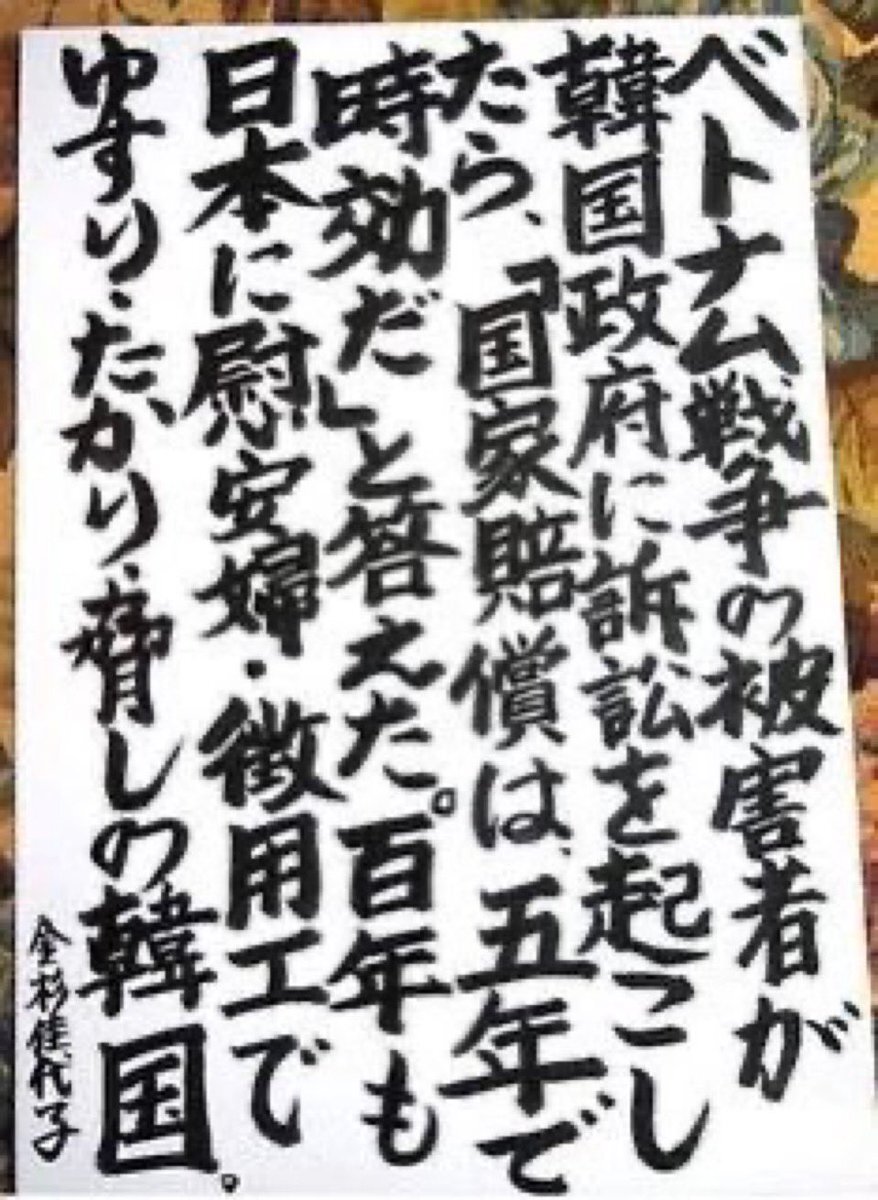 ベトナム戦争の被害者が
韓国政府に訴訟を起こし
たら、「国家賠償は、五年で
時効だ」と答えた。百年も
日本に慰安婦・徴用工で
ゆすり・たかり・脅しの韓国。
金杉佳代子